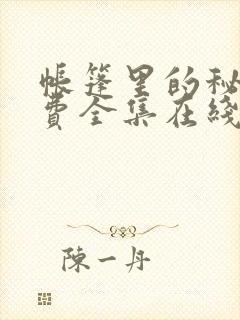 帳篷里的秘
费全集在綫
陳一丹